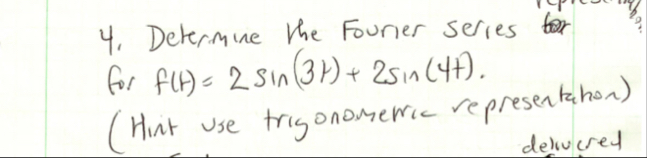 4. Determine the Fourier series
for f(t) = 2 sin(3t) + 2sin(4t).
(Hint use trigonometric representation)
delivered